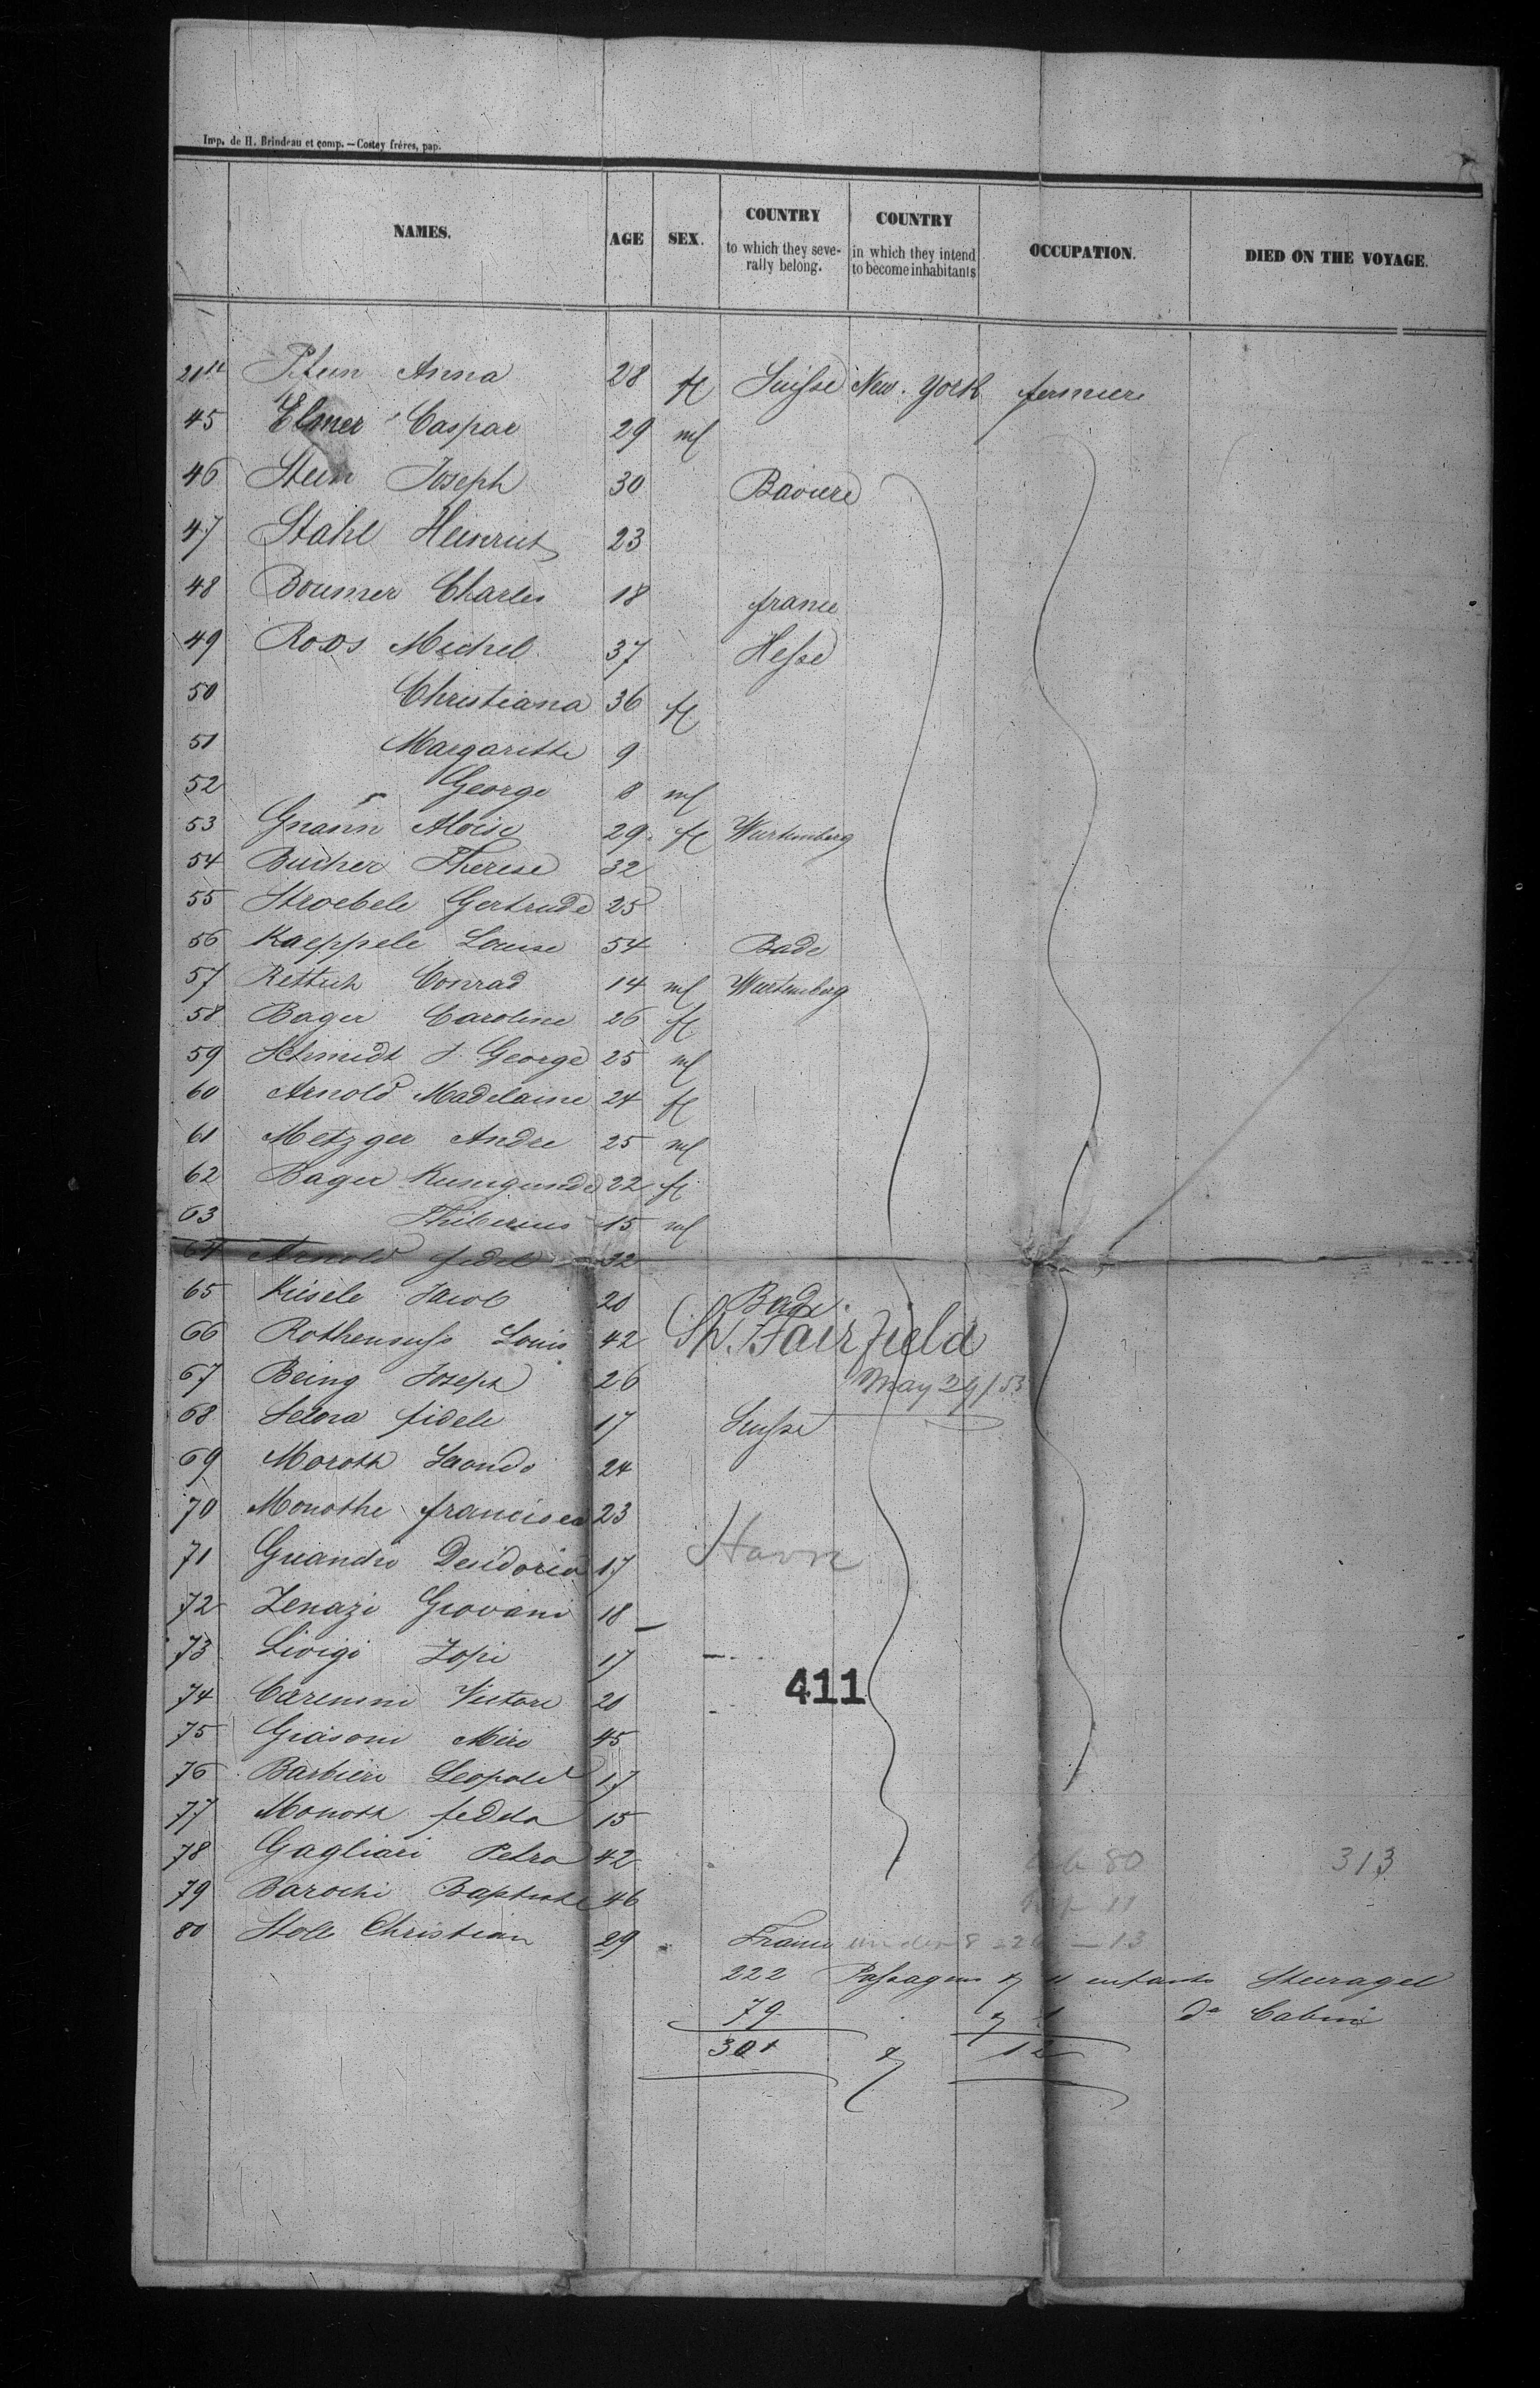 Imp. de H. Brindeau et comp. — Costey frères, pap.
NAMES. AGE SEX. COUNTRY to which they severally belong. COUNTRY in which they intend to become inhabitants OCCUPATION. DIED ON THE VOYAGE.
Anna 28 f Suisse New-York fermier
45 Elmer Caspar 29 m
46 Stein Joseph 30 Baviere
47 Stahl Heinrich 23
48 Boumer Charles 18 france
49 Roos Michel 37 Hesse
50 Christiana 36 f
51 Margarethe 9
52 " George 8 m
53 Gnann Aloise 29 f Wurtemberg
54 Bucher Therese 32
55 Stroebele Gertrude 25
56 Kaeppele Louise 54 Bade
57 Rettich Conrad 14 m Wurtemberg
58 Bager Caroline 26 f
59 Schmidt J. George 25 m
60 Arnold Madelaine 24 f
61 Metzger Andre 25 m
62 Bager Kunegunde 22 f
63 Thiberius 15 m
64 Arnold fidel 32
65 Kisele Jacob 20 Bade
66 Louis 42 Sh. Fairfield
67 Being Joseph 26 May 29/53
68 fidele 17 Suisse
69 Moroth 24
70 Monothe francisca 23
71 Desidorio 17
Havre
72 Zenazi Giovani 18
73 Livigi 17
74 Victore 20
411
75 Giasoni 45
76 Barbieri Leopold 17
77 Monoth fedela 15
78 Gagliari Petro 42 80 313
79 Barochi Baptiste 46 11
80 Stoll Christian 29 France under 8 13
222 Passagers & 11 enfants Steerage
79 & 1 do Cabin
301 & 12